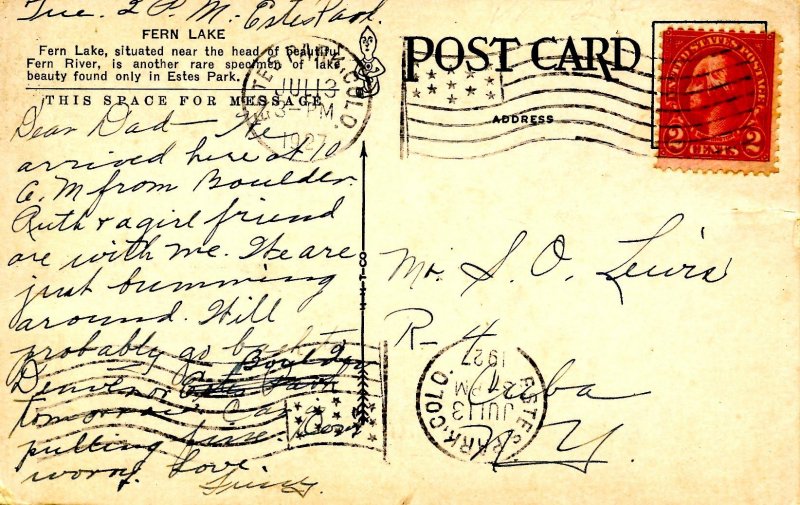 Tue. 2 P.M. Estes Park.
FERN LAKE
Fern Lake, situated near the head of beautiful
Fern River, is another rare specimen of lake
beauty found only in Estes Park.
THIS SPACE FOR MESSAGE
Dear Dad - We
arrived here at 10
A.M from Boulder.
Ruth & a girl friend
are with me. We are
just bumming
around. Will
probably go back to
Boulder
Denver or Estes Park
tomorrow. Car is
pulling fine. Don't
worry. Love.
POST CARD
ADDRESS
ESTES PARK, COLO.
JUL 13
3-PM
1927
UNITED STATES POSTAGE
2 CENTS 2
Mr. S. O. Lewis
R-4
Cuba
N.Y.
ESTES PARK, COLO.
JUL 13
PM
1927